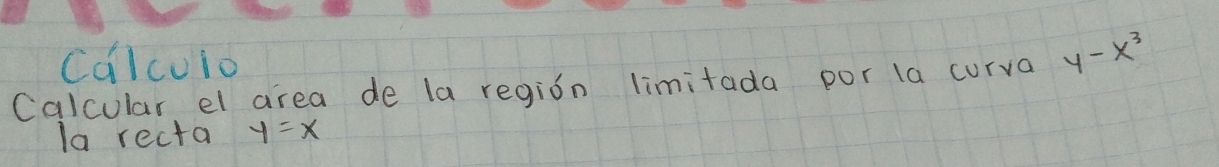 Cálculo
Calcular el área de la región limitada por la curva y-x³
la recta y=x